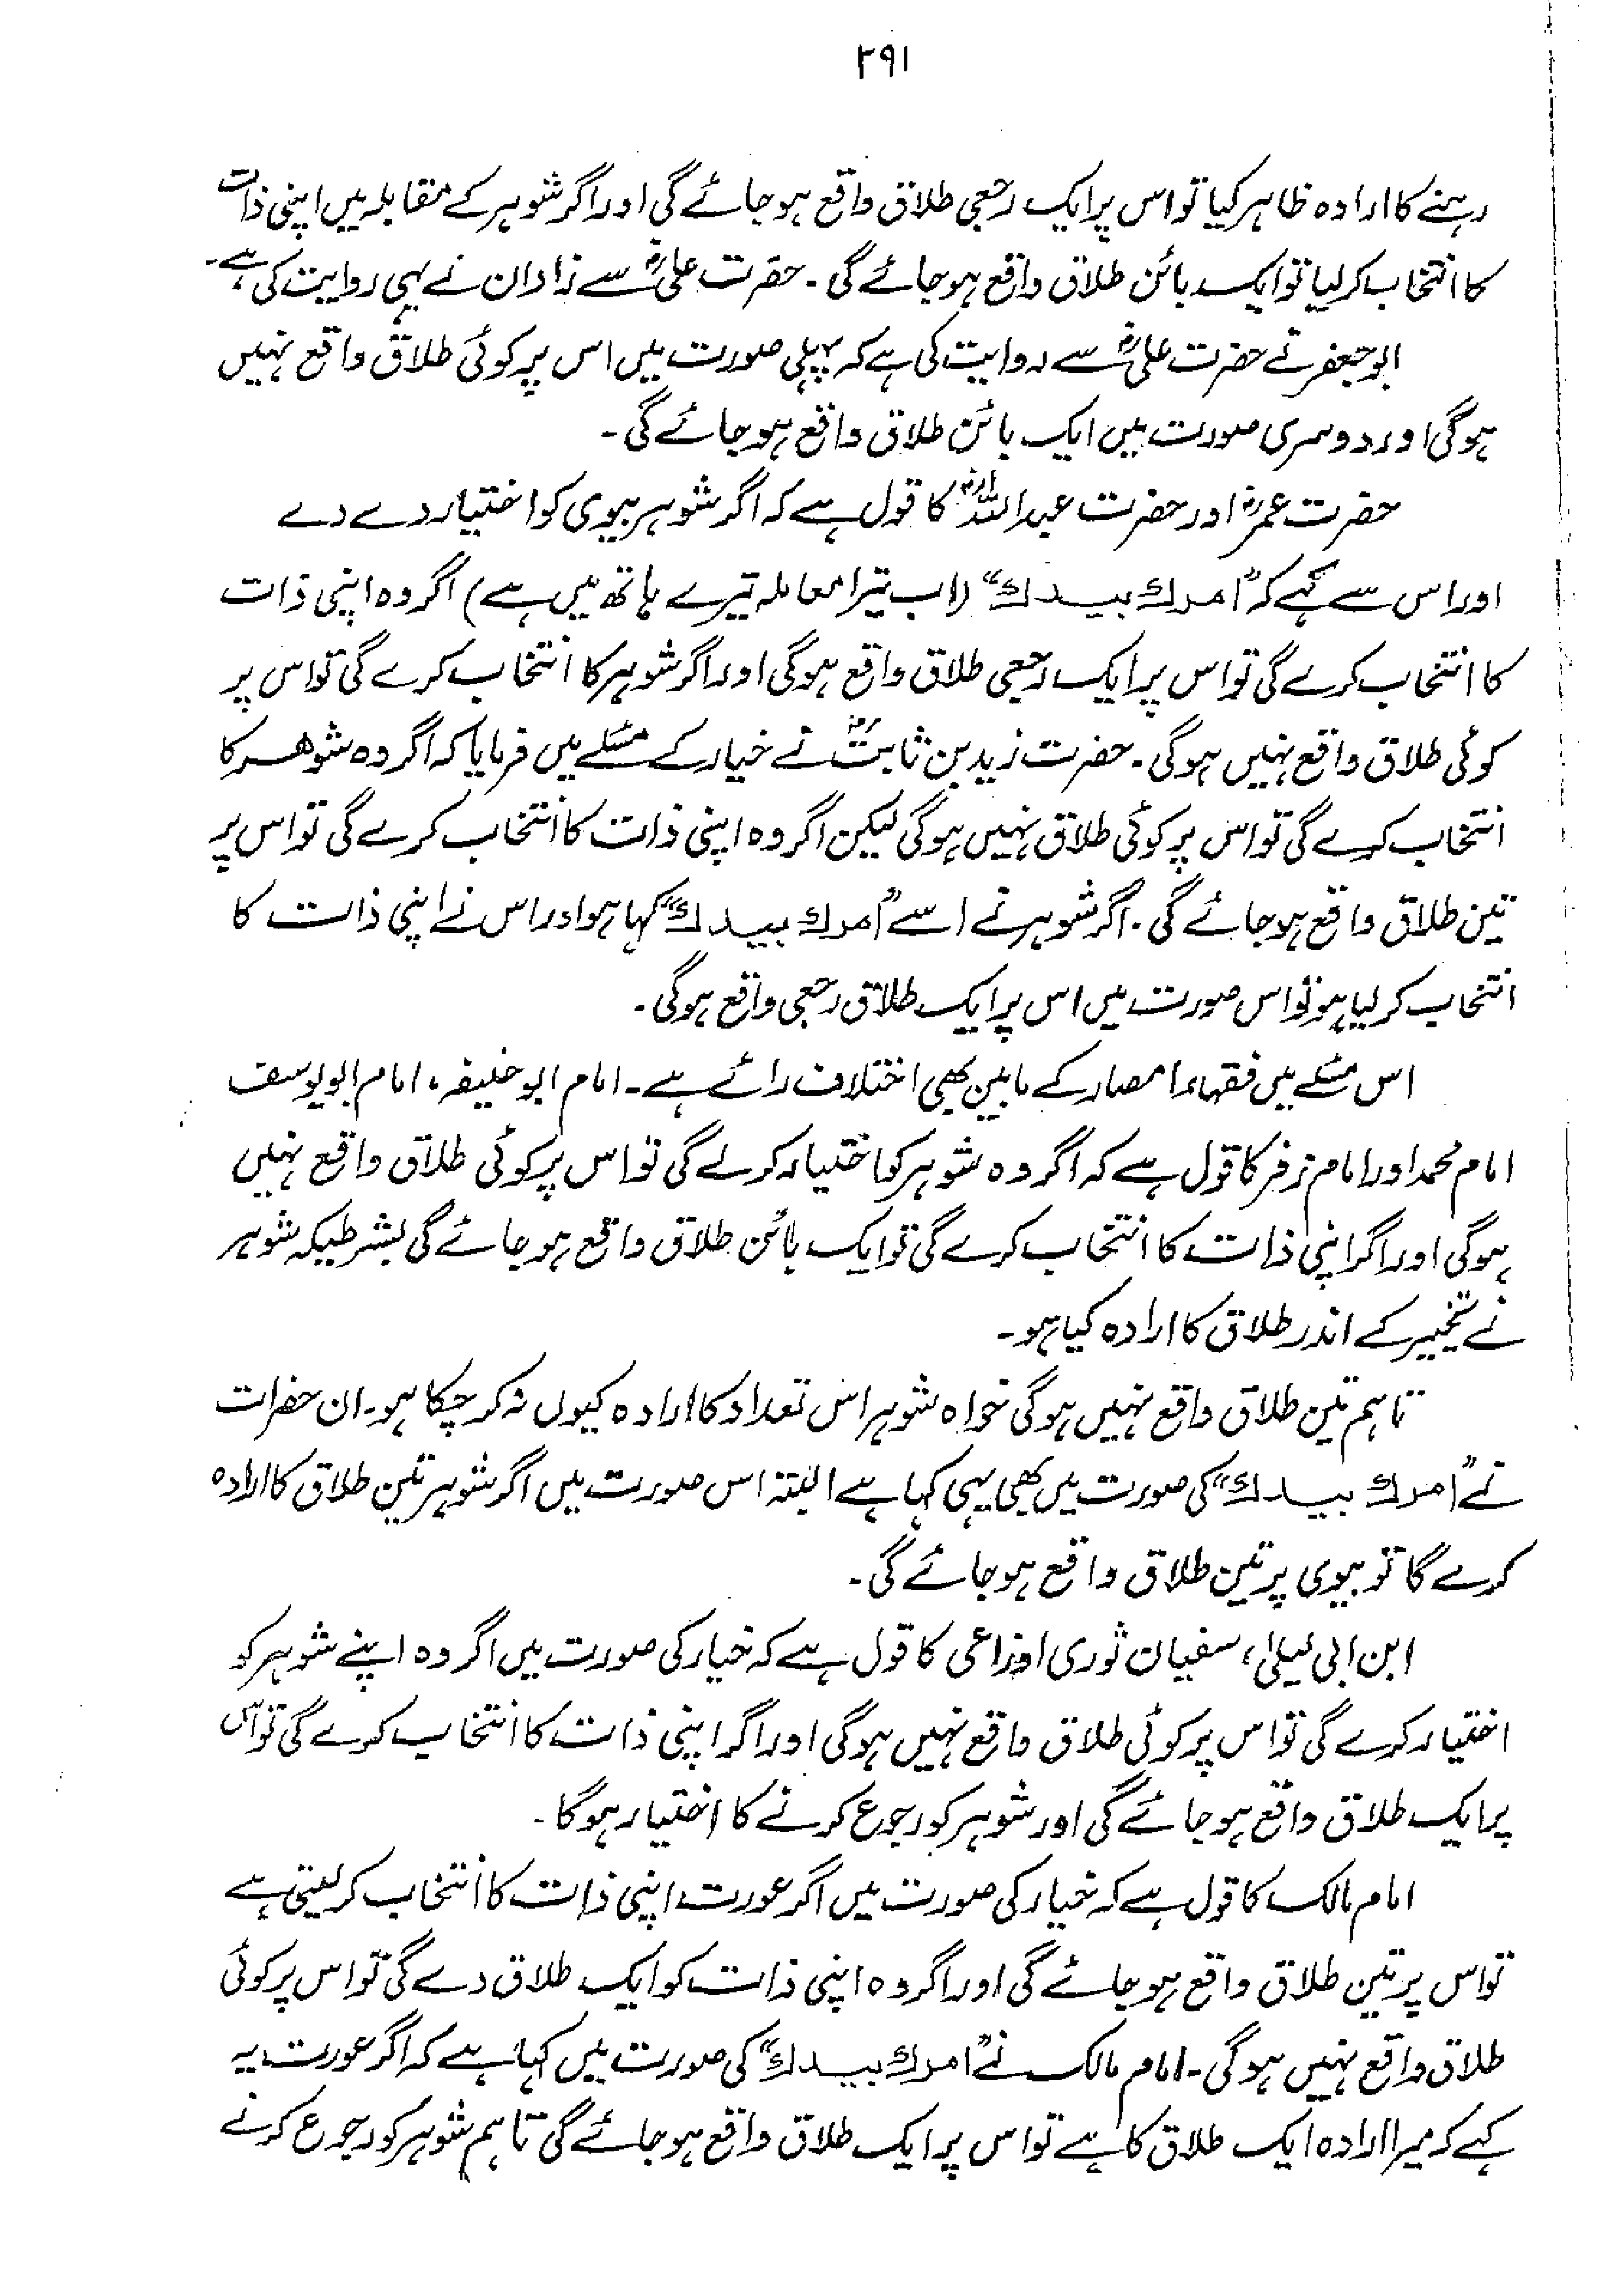 ۲۹۱
رہنے کا ارادہ ظاہر کیا تو اس پر ایک رجعی طلاق واقع ہو جائے گی اور اگر شوہر کے مقابلہ میں اپنی ذات
کا انتخاب کر لیا تو ایک بائن طلاق واقع ہو جائے گی ۔ حضرت علیؓ سے زاذان نے یہی روایت کی ہے ۔
ابو جعفر نے حضرت علیؓ سے روایت کی ہے کہ پہلی صورت میں اس پر کوئی طلاق واقع نہیں
ہوگی اور دوسری صورت میں ایک بائن طلاق واقع ہو جائے گی ۔
حضرت عمرؓ اور حضرت عبداللہؓ کا قول ہے کہ اگر شوہر بیوی کو اختیار دے دے
اور اس سے کہے کہ ”امرك بيدك“ (اب تیرا معاملہ تیرے ہاتھ میں ہے) اگر وہ اپنی ذات
کا انتخاب کرے گی تو اس پر ایک رجعی طلاق واقع ہوگی اور اگر شوہر کا انتخاب کرے گی تو اس پر
کوئی طلاق واقع نہیں ہوگی ۔ حضرت زید بن ثابتؓ نے خیار کے مسئلے میں فرمایا کہ اگر وہ شوھر کا
انتخاب کرے گی تو اس پر کوئی طلاق نہیں ہوگی لیکن اگر وہ اپنی ذات کا انتخاب کرے گی تو اس پر
تین طلاق واقع ہو جائے گی ۔ اگر شوہر نے اسے ”امرك بيدك“ کہا ہو اور اس نے اپنی ذات کا
انتخاب کر لیا ہو تو اس صورت میں اس پر ایک طلاق رجعی واقع ہوگی ۔
اس مسئلے میں فقہاء امصار کے مابین بھی اختلاف رائے ہے ۔ امام ابو حنیفہ، امام ابو یوسف
امام محمد اور امام زفر کا قول ہے کہ اگر وہ شوہر کو اختیار کرلے گی تو اس پر کوئی طلاق واقع نہیں
ہوگی اور اگر اپنی ذات کا انتخاب کرے گی تو ایک بائن طلاق واقع ہو جائے گی بشرطیکہ شوہر
نے تخییر کے اندر طلاق کا ارادہ کیا ہو ۔
تاہم تین طلاق واقع نہیں ہوگی خواہ شوہر اس تعداد کا ارادہ کیوں نہ کر چکا ہو ۔ ان حضرات
نے ”امرك بيدك“ کی صورت میں بھی یہی کہا ہے البتہ اس صورت میں اگر شوہر تین طلاق کا ارادہ
کرے گا تو بیوی پر تین طلاق واقع ہو جائے گی ۔
ابن ابی لیلیٰ، سفیان ثوری اوزاعی کا قول ہے کہ خیار کی صورت میں اگر وہ اپنے شوہر کو
اختیار کرے گی تو اس پر کوئی طلاق واقع نہیں ہوگی اور اگر اپنی ذات کا انتخاب کرے گی تو اس
پر ایک طلاق واقع ہو جائے گی اور شوہر کو رجوع کرنے کا اختیار ہوگا ۔
امام مالک کا قول ہے کہ خیار کی صورت میں اگر عورت اپنی ذات کا انتخاب کر لیتی ہے
تو اس پر تین طلاق واقع ہو جائے گی اور اگر وہ اپنی ذات کو ایک طلاق دے گی تو اس پر کوئی
طلاق واقع نہیں ہوگی ۔ امام مالک نے ”امرك بيدك“ کی صورت میں کہا ہے کہ اگر عورت یہ
کہے کہ میرا ارادہ ایک طلاق کا ہے تو اس پر ایک طلاق واقع ہو جائے گی تاہم شوہر کو رجوع کرنے